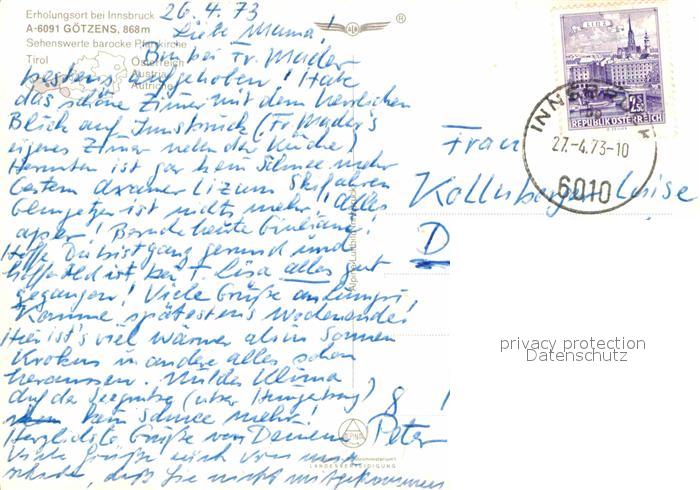 Erholungsort bei Innsbruck
A-6091 GÖTZENS, 868m
Sehenswerte barocke Pfarrkirche
Tirol
Österreich
Austria
Autriche
26.4.73
Liebe Mama!
Bin bei Fr. Mader
bestens aufgehoben! Habe
das schöne Zimmer mit dem herrlichen
Blick auf Innsbruck (Fr Mader's
eigenes Zimmer neben der Küche)
Herunten ist gar kein Schnee mehr
Gestern Axamer Lizum Skifahren
ist nichts mehr! Alles
aper! Besuche heute
Hoffe Du bist ganz gesund und
hoffentlich ist bei T. Lisa alles gut
gegangen! Viele Grüße an
Komme spätestens Wochenende!
Hier ist's viel wärmer als in
Krokus und andere alles schon
heraussen. Mildes Klima
auf der Seegrube (über Hungerburg)
kein Schnee mehr!
Herzlichste Grüße von Deinem Peter
Viele Grüße auch von
schade, daß Sie nicht mitgekommen
LINZ
2.50
REPUBLIK ÖSTERREICH
INNSBRUCK
27.-4.73-10
6010
Frau
Luise
D
8
ALPINA
LANDESVERTEIDIGUNG
privacy protection
Datenschutz